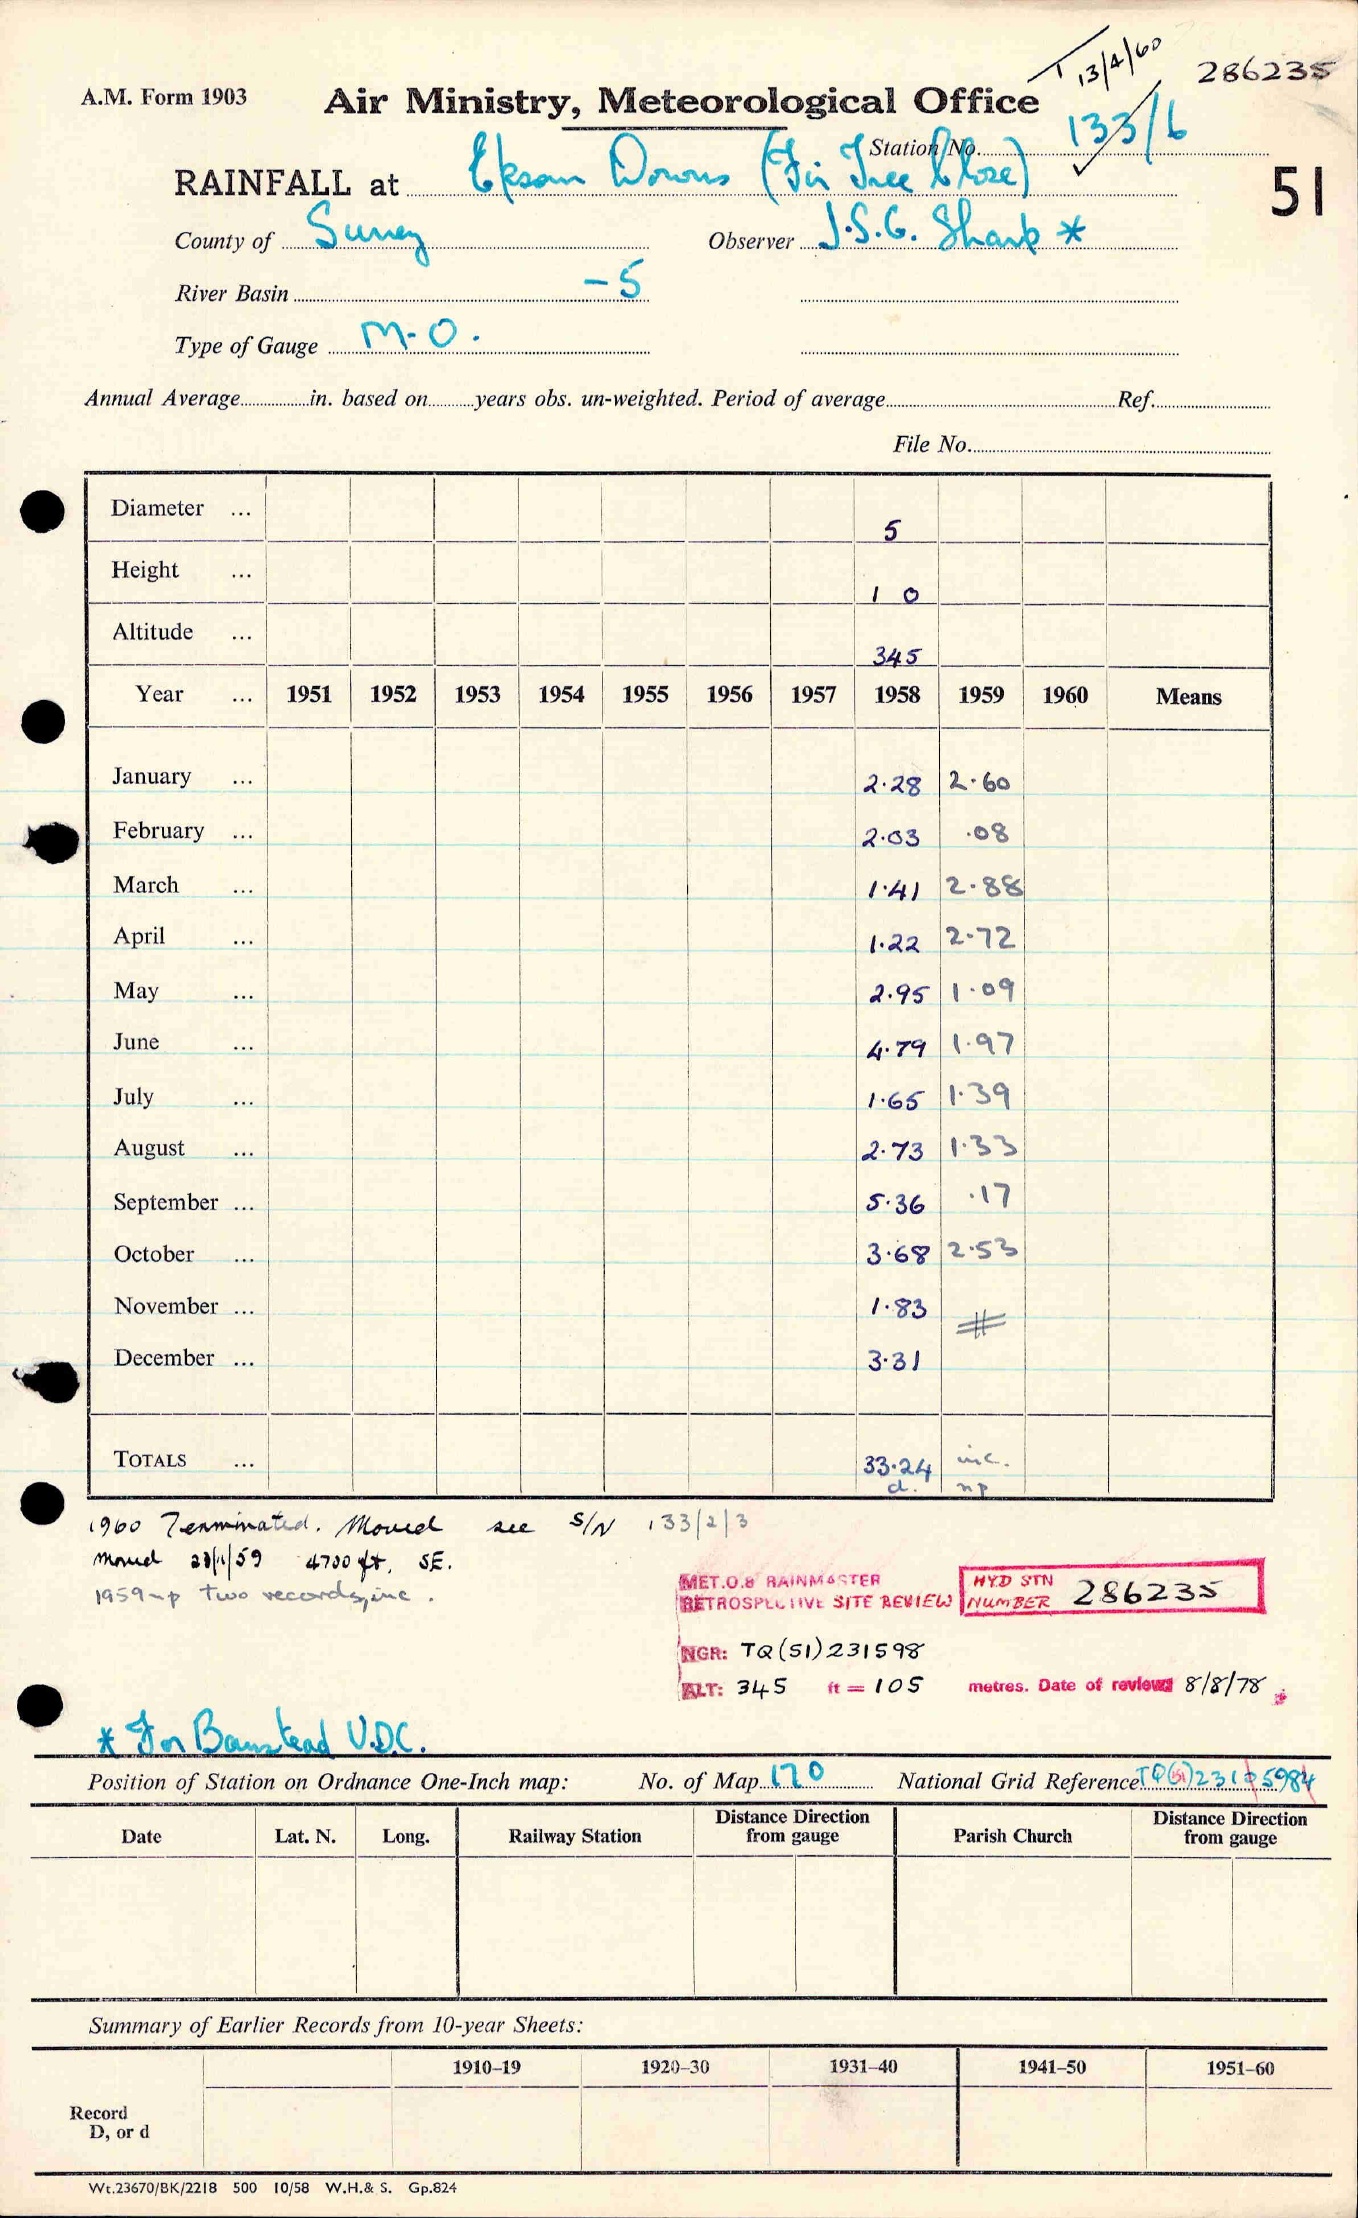 13/4/60
286235
A.M. Form 1903
Air Ministry, Meteorological Office
Station No. 133/6
RAINFALL at Epsom Downs (Fir Tree Close)
51
County of Surrey Observer J.S.G. Sharp *
River Basin -5
Type of Gauge M.O.
Annual Average in. based on years obs. un-weighted. Period of average Ref.
File No.
Diameter ... 5
Height ... 1 0
Altitude ... 345
Year ... 1951 1952 1953 1954 1955 1956 1957 1958 1959 1960 Means
January ... 2.28 2.60
February ... 2.03 .08
March ... 1.41 2.88
April ... 1.22 2.72
May ... 2.95 1.09
June ... 4.79 1.97
July ... 1.65 1.39
August ... 2.73 1.33
September ... 5.36 .17
October ... 3.68 2.53
November ... 1.83
December ... 3.31
TOTALS ... 33.24 inc.
d. np
1960 Terminated. Moved see S/N 133/2/3
Moved /59 4700 ft. SE.
1959-p two records, inc.
MET.O.8 RAINMASTER
RETROSPECTIVE SITE REVIEW
HYD STN
NUMBER 286235
NGR: TQ(51)231598
ALT: 345 ft = 105 metres. Date of review 8/8/78
* For Banstead U.D.C.
Position of Station on Ordnance One-Inch map: No. of Map 170 National Grid Reference TQ(51)2310 5984
Date Lat. N. Long. Railway Station Distance Direction from gauge Parish Church Distance Direction from gauge
Summary of Earlier Records from 10-year Sheets:
1910–19 1920–30 1931–40 1941–50 1951–60
Record
D, or d
Wt.23670/BK/2218 500 10/58 W.H.& S. Gp.824